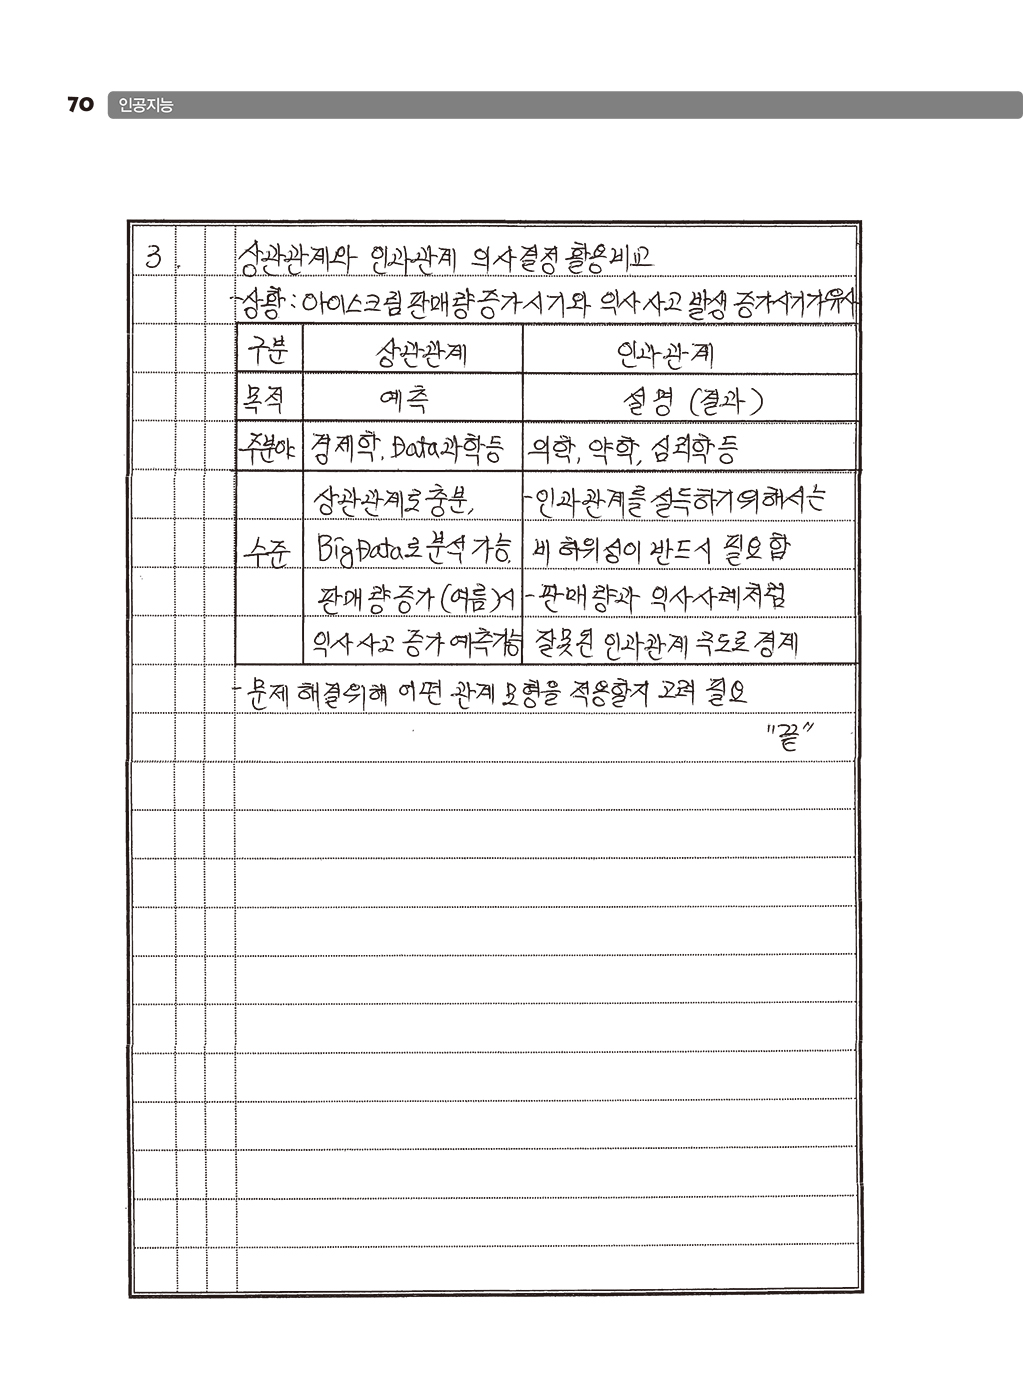 70 인공지능
3. 상관관계와 인과관계 의사결정 활용비교
- 상황 : 아이스크림 판매량 증가시기와 익사 사고 발생 증가시기가 유사
구분 상관관계 인과관계
목적 예측 설명 (결과)
주분야 경제학, Data과학등 의학, 약학, 심리학 등
상관관계로 충분, - 인과관계를 설득하기 위해서는
수준 Big Data로 분석 가능, 비 허위성이 반드시 필요함
판매량증가(여름)시 - 판매량과 익사사례처럼
익사 사고 증가 예측가능 잘못된 인과관계 극도로 경계
- 문제 해결위해 어떤 관계 모형을 적용할지 고려 필요
"끝"